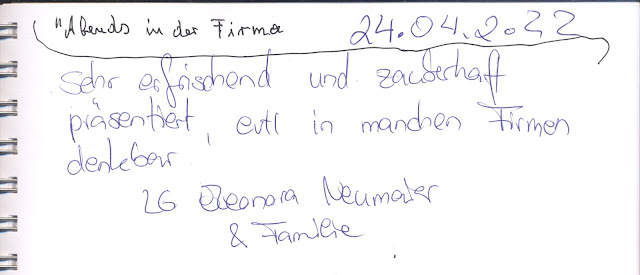 "Abends in der Firma 24.04.2022
Sehr erfrischend und zauberhaft
präsentiert, evtl in manchen Firmen
denkbar
LG Eleonora Neumater
& Familie